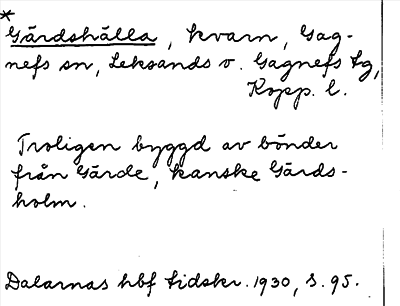 *
Gärdshälla, kvarn, Gag-
nefs sn, Leksands o. Gagnefs tg,
Kopp. l.
Troligen byggd av bönder
från Gärde, kanske Gärds-
holm.
Dalarnas hbf tidskr. 1930, s. 95.